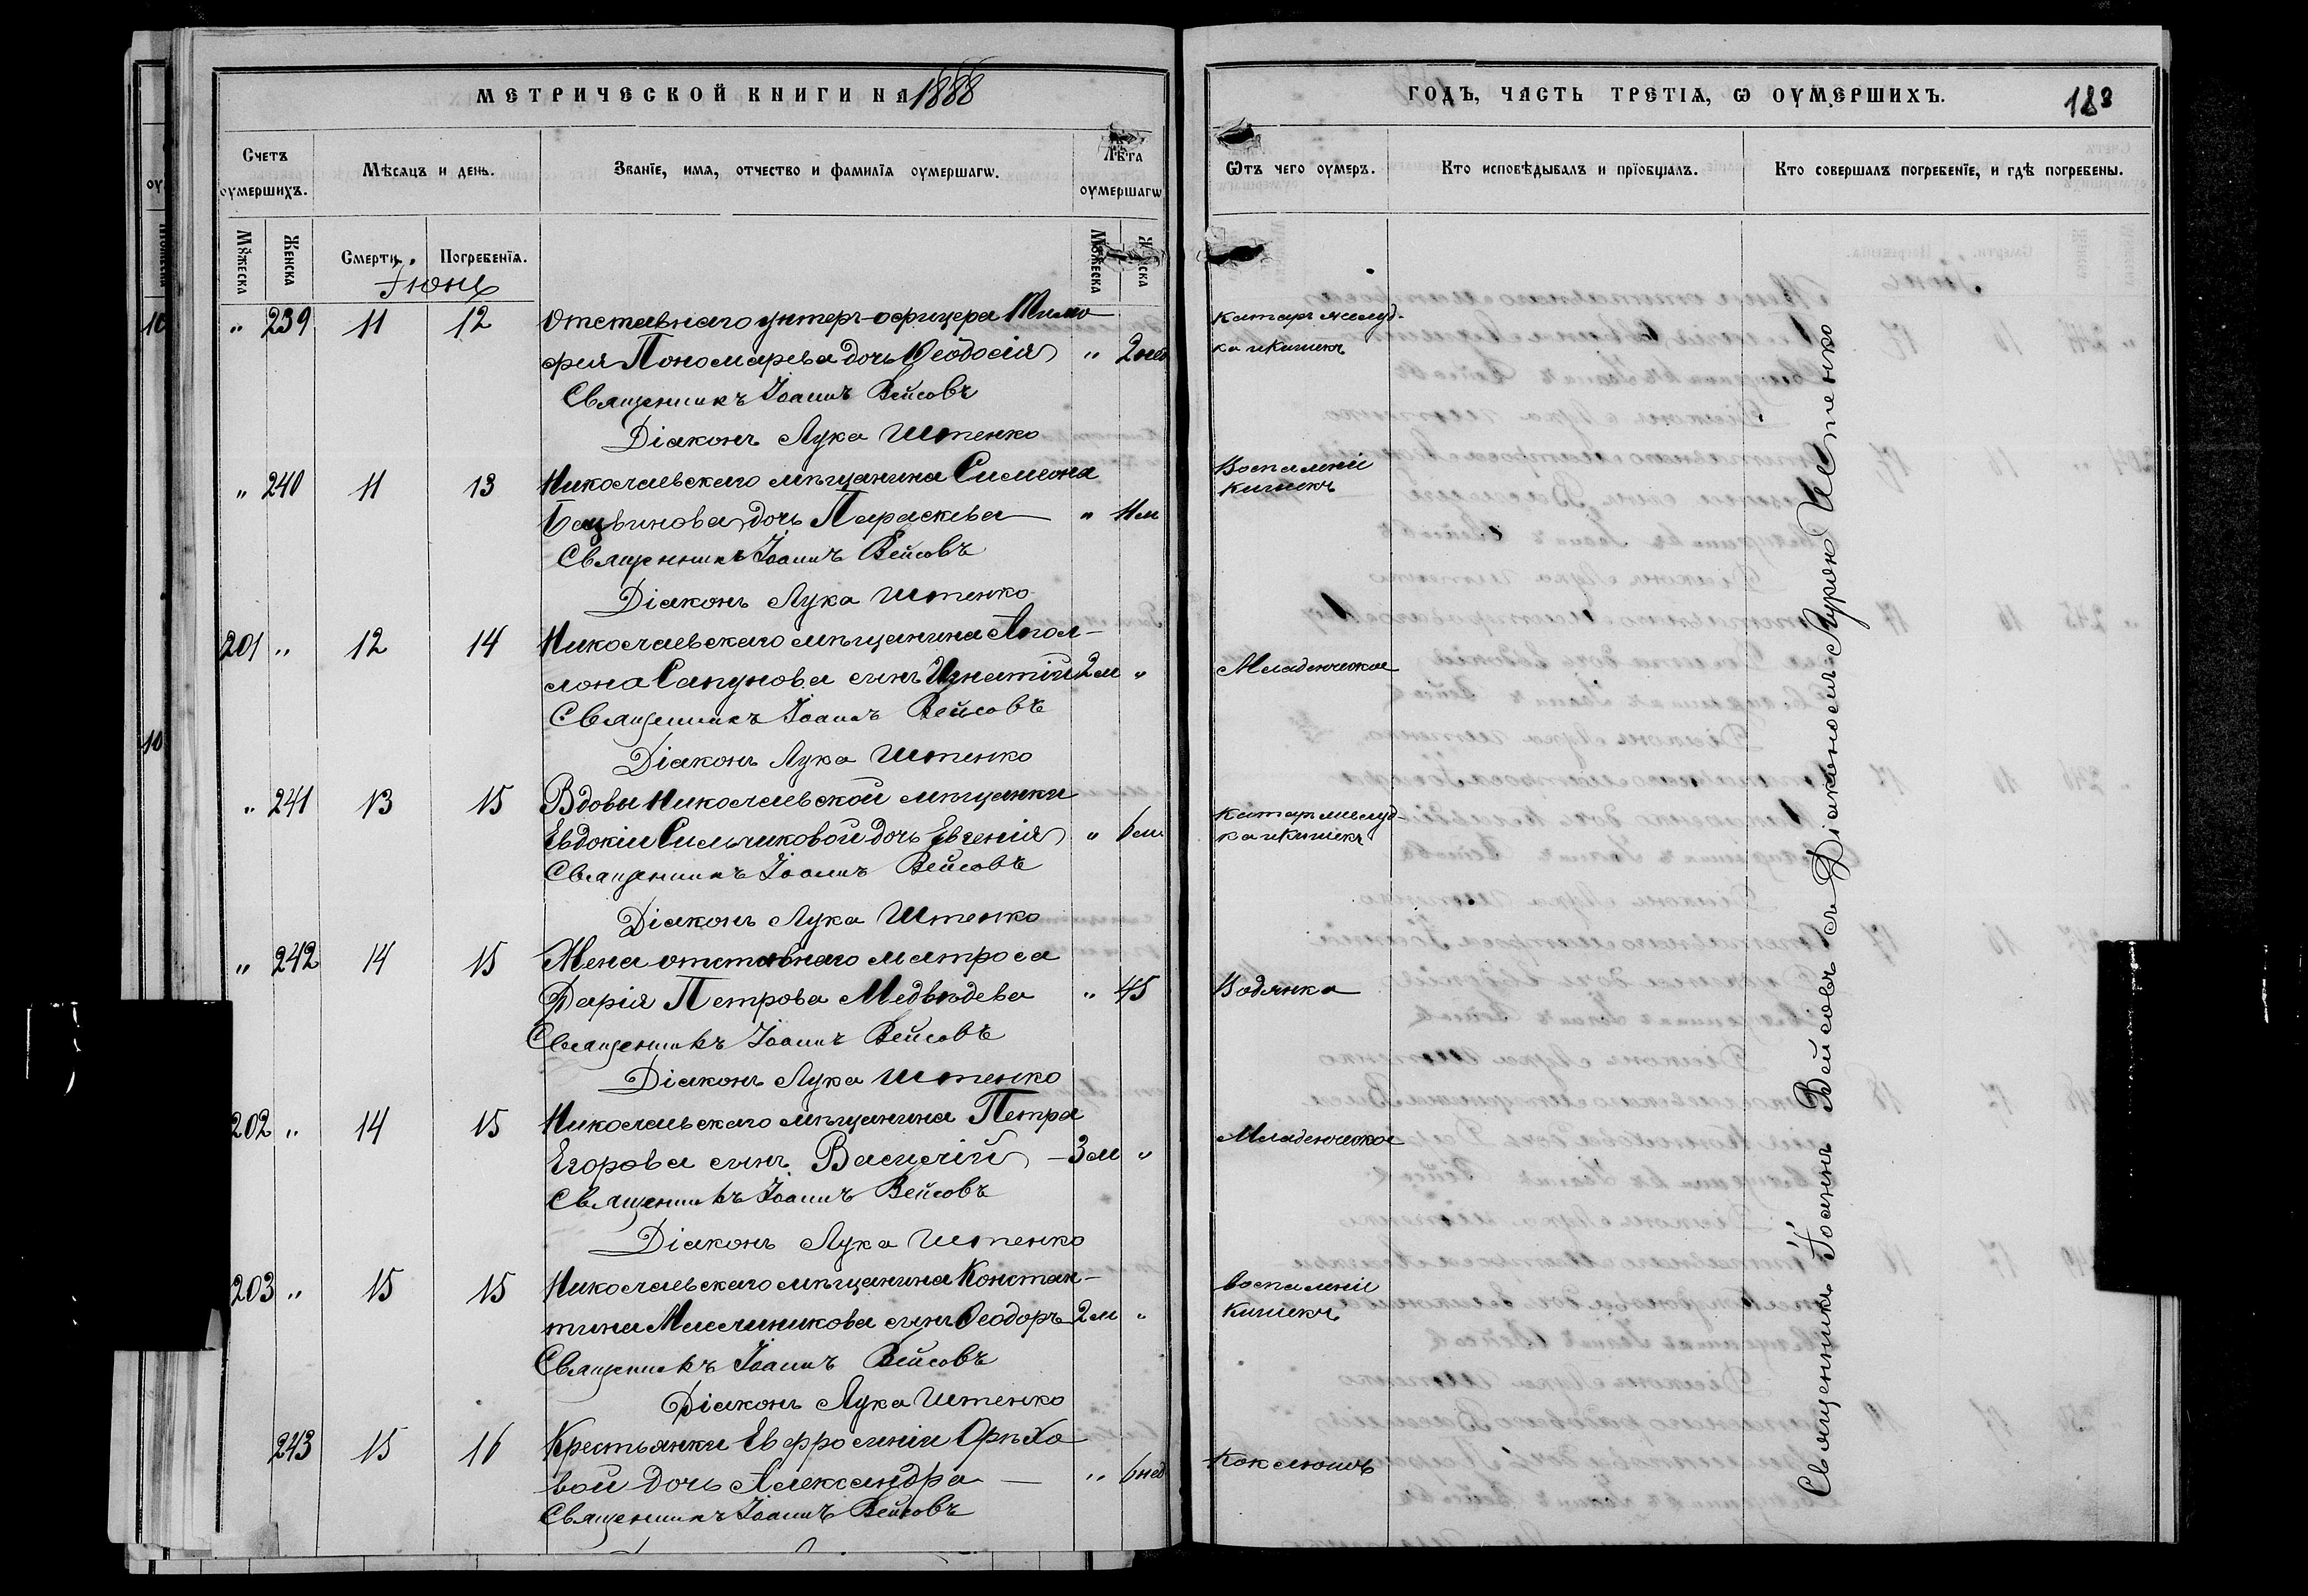 МЕТРИЧЕСКОЙ КНИГИ НА 1888
ГОДЪ, ЧАСТЬ ТРЕТІѦ, Ѡ ОУМЕРШИХЪ.
183
Счетъ оумершихъ.
Мѣсяцъ и день.
Званїе, имя, отчество и фамилїя оумершагѡ.
Лѣта оумершагѡ
Ѿтъ чего оумеръ.
Кто исповѣдывалъ и прїобщалъ.
Кто совершалъ погребенїе, и гдѣ погребены.
Мꙋжеска
Женска
Смерти.
Погребенїя.
Мꙋжеска
Іюнь
" 239 11 12 Отставнаго унтеръ-офицера Тимо-
фея Пономарева дочь Ѳеодосія " 2 нед
Катаръ желуд-
ка и кишекъ
Священникъ Іоаннъ Вейсовъ
Діаконъ Лука Штенко
" 240 11 13 Николаевскаго мѣщанина Симеона
дочь Параскева " 11 м
Воспаленіе
кишекъ
Священникъ Іоаннъ Вейсовъ
Діаконъ Лука Штенко
201 " 12 14 Николаевскаго мѣщанина Апол-
лона Сапунова сынъ Игнатій 2 м "
Младенческое
Священникъ Іоаннъ Вейсовъ
Діаконъ Лука Штенко
" 241 13 15 Вдовы Николаевской мѣщанки
Евдокіи Сильчиковой дочь Евгенія " 6 м
Катаръ желуд-
ка и кишекъ
Священникъ Іоаннъ Вейсовъ
Діаконъ Лука Штенко
" 242 14 15 Жена отставнаго матроса
Дарія Петрова Медвѣдева " 45
Водянка
Священникъ Іоаннъ Вейсовъ
Діаконъ Лука Штенко
202 " 14 15 Николаевскаго мѣщанина Петра
Егорова сынъ Василій 3 м "
Младенческое
Священникъ Іоаннъ Вейсовъ
Діаконъ Лука Штенко
203 " 15 15 Николаевскаго мѣщанина Констан-
тина Масленикова сынъ Ѳеодоръ 2 м "
Воспаленіе
кишекъ
Священникъ Іоаннъ Вейсовъ
Діаконъ Лука Штенко
243 15 16 Крестьянки Евфросиніи Орѣхо-
вой дочь Александра " 6 нед
Коклюшъ
Священникъ Іоаннъ Вейсовъ
Священникъ Іоаннъ Вейсовъ съ Діакономъ Лукою Штенко